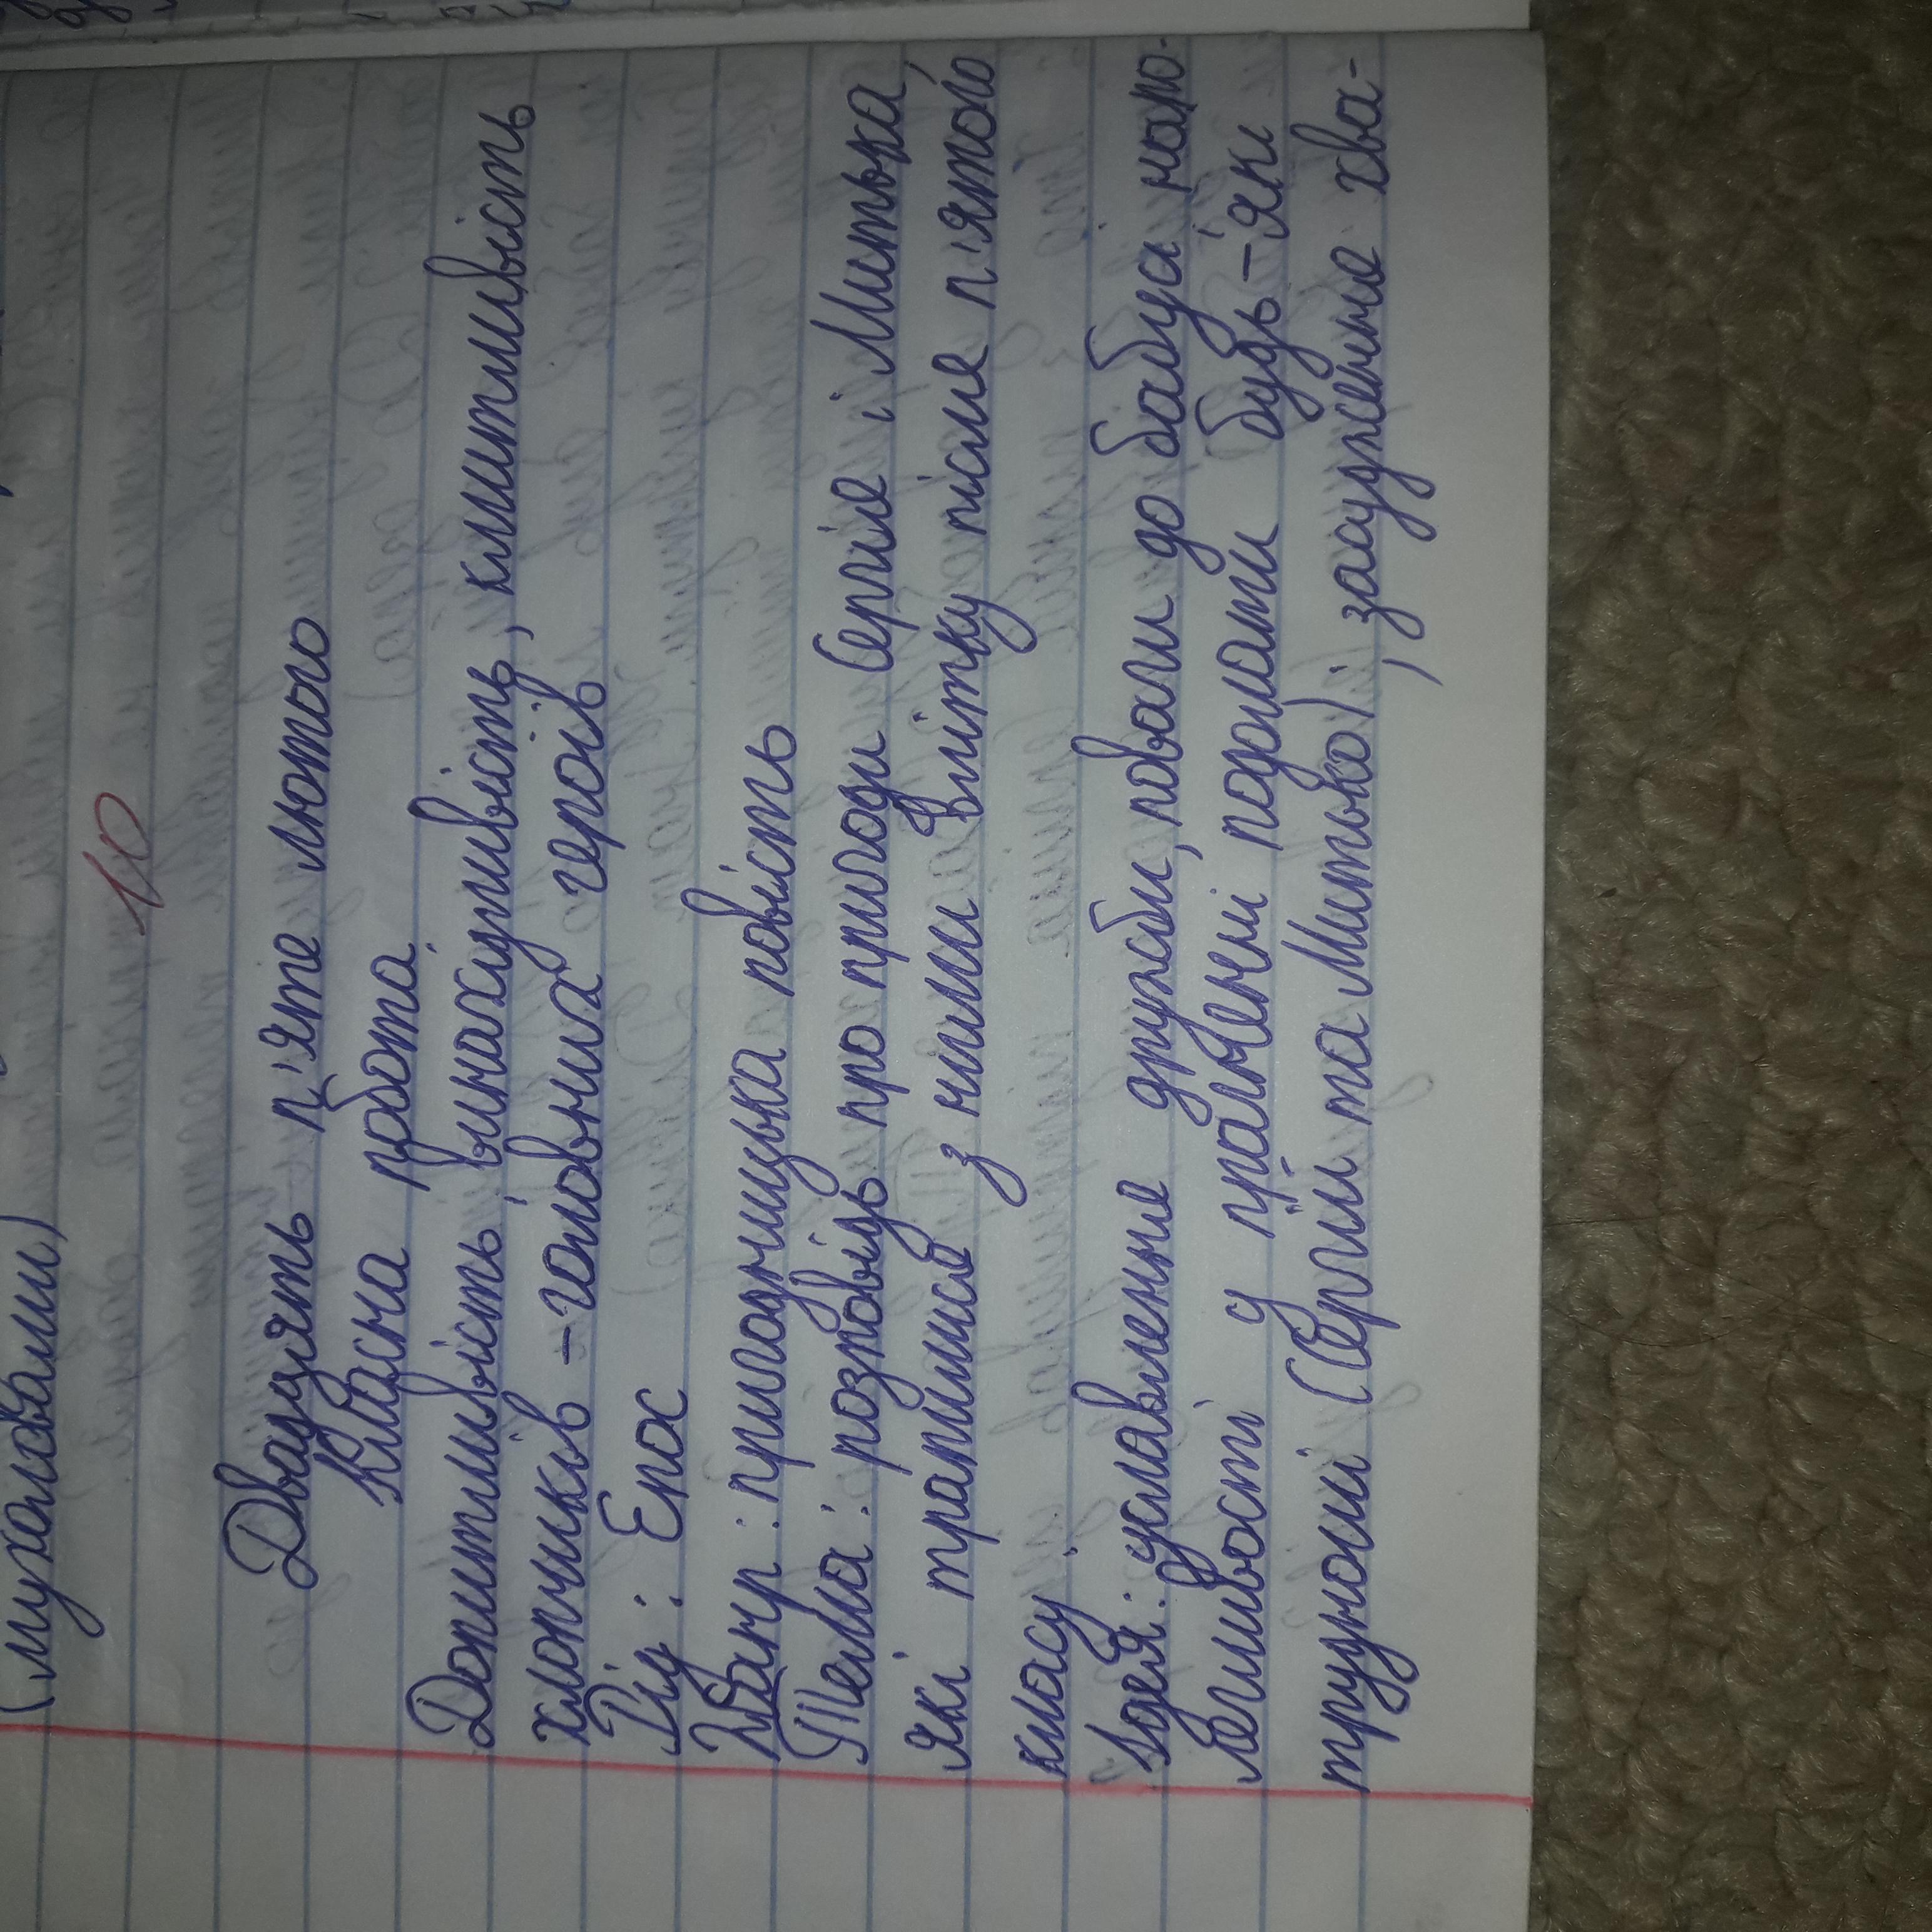 (мухоловами)
10
Двадцять п'яте лютого
Класна робота
Допитливість, винахідливість, кмітливість
хлопчиків – головних героїв
Рід: Епос
Жанр: пригодницька повість
Тема: розповідь про пригоди Сергія і Митька,
які трапилися з ними влітку після п'ятого
класу
Ідея: уславлення дружби, поваги до бабусі, напо-
легливості у прагненні подолати будь-які
труднощі (Сергій та Митько), засудження хва-